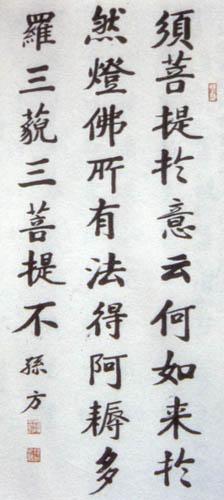 須菩提扵意云何如来扵
然燈佛所有法得阿耨多
羅三藐三菩提不
孫方